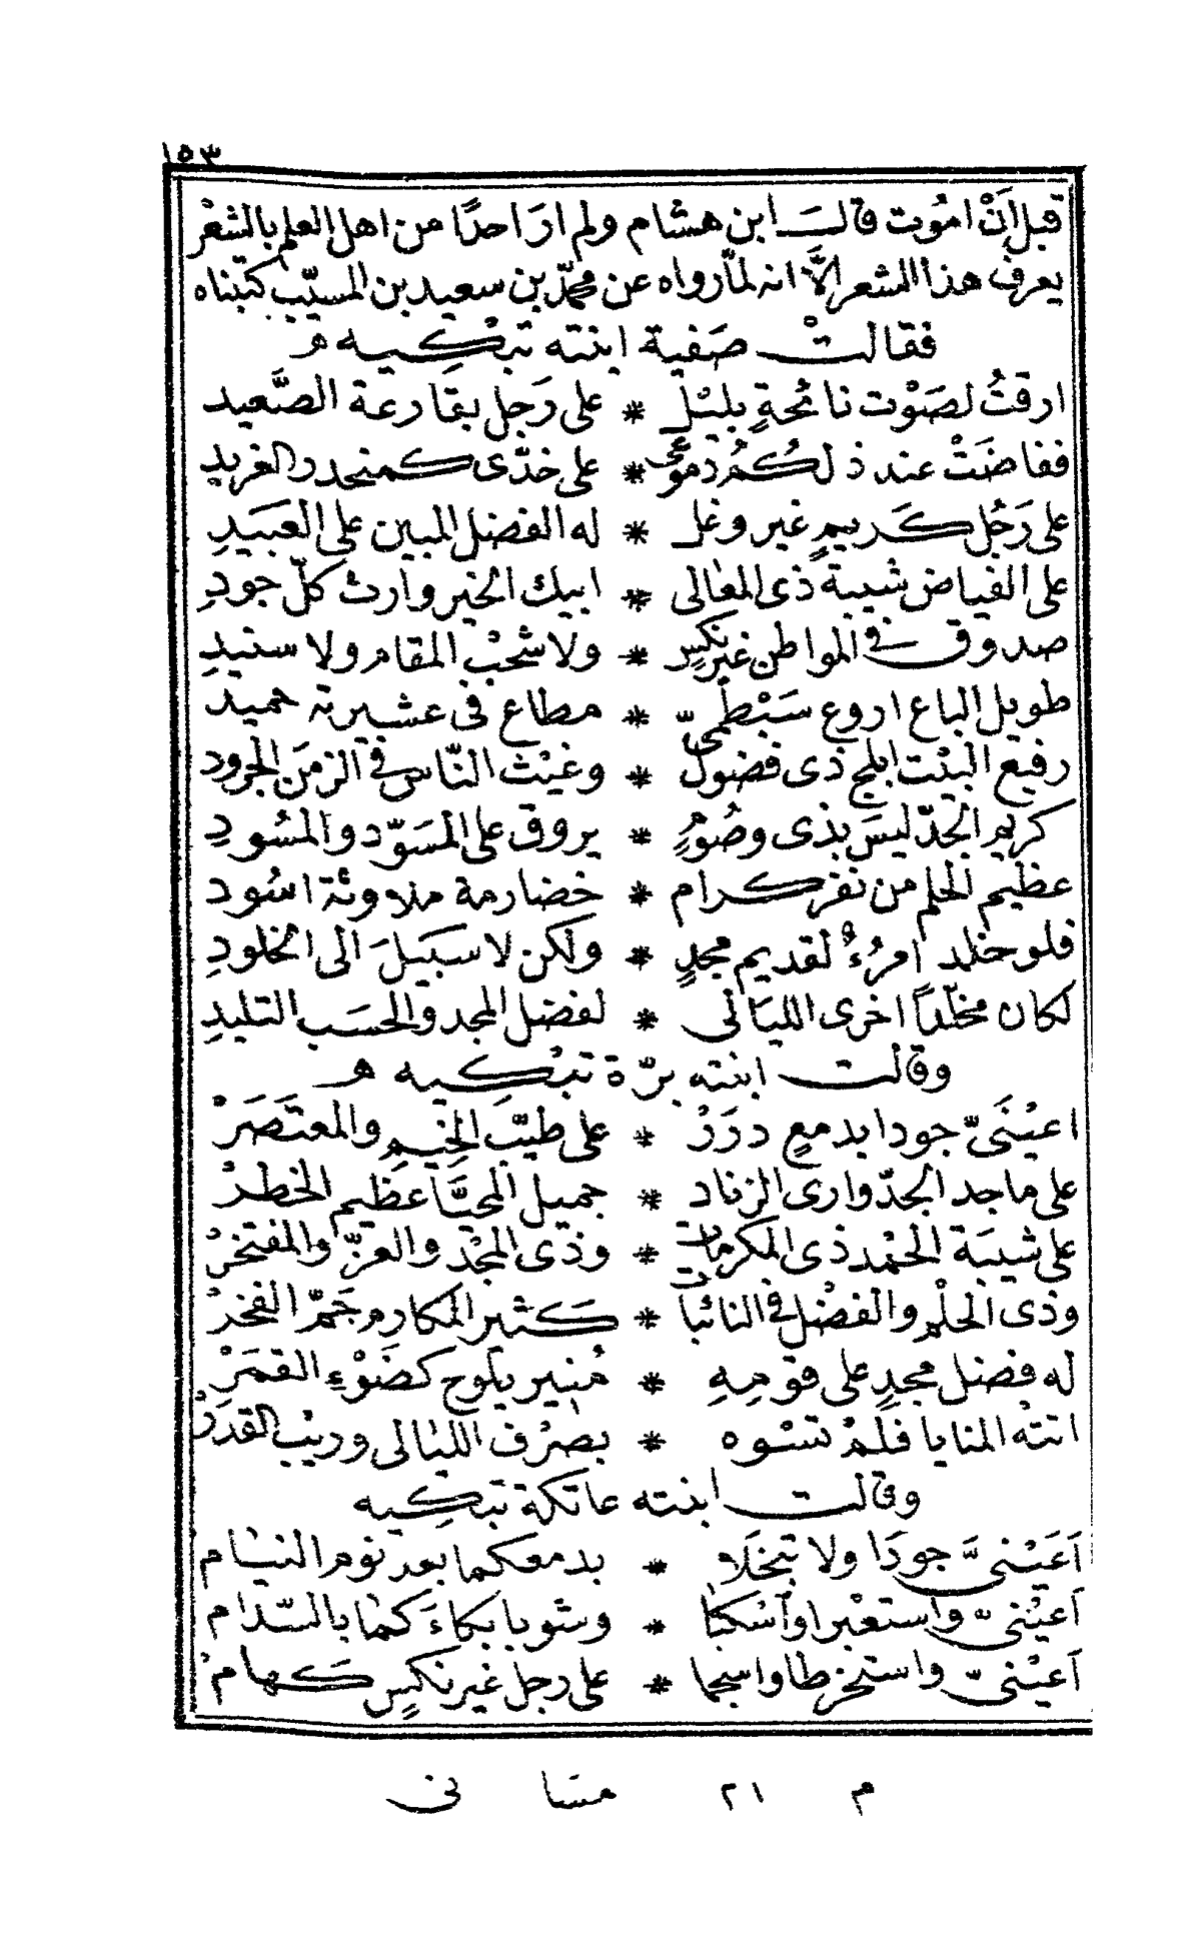 ١٥٣
قبل اَنْ اموُت قالــ ابن هشام ولم ار احدًا من اهل العلم بالشعْر
يعرف هذا الشعر الاَّ انه لمّا رواه عن محمّد بن سعيد بن المسيّب كتبناه
فقالتْ صَفية ابنته تبْكيه
ارقتُ لصَوْت نائحةٍ بليْل * على رَجل بقارعة الصَّعيد
ففاضَتْ عند ذلكُمُ دموعى * على خدّى كمنحدر الفريد
على رَجُل كَريمٍ غير وغل * له الفضل المبين على العبَيدِ
على الفياض شيبة ذى المعالى * ابيك الخير وارث كلّ جودِ
صدوق فى المواطن غير نكسٍ * ولا شخْب المقام ولا سنيدِ
طويل الباع اروع سَبْظمىّ * مطاع فى عشيرته حميد
رفيع البيْت ابلج ذى فضول * وغيْث النّاس فى الزمَن الجرود
كريم الجدّ ليسَ بذى وصُومٍ * يروق على المسَوّد والمسُودِ
عظيم الحلم من نفر كرام * خضارمة ملاوثة اسُود
فلو خلد امرُءٌ لقديم مجدٍ * ولكن لا سبَيلَ الى الخلودِ
لكان مخلّداً اخرى الليَالى * لفضل المجد والحسَب التليدِ
وقالت ابنته برّة تبْكيه
اعيْنَىّ جودا بدمعٍ دررْ * على طيّب الخيمِ والمعتصَرْ
على ماجد الجدّ وارى الزناد * جميل المحيَّا عظيم الخطرْ
على شيبَة الحمْد ذى المكرمات * وذى المجْد والعزّ والمفتخرْ
وذى الحلْم والفضْل فى النائبات * كَثير المكارم جَمّ الفخرْ
له فضل مجدٍ على قومِهِ * مُنير يلوح كضَوْءِ القمَرْ
اتته المنايا فلمْ تشْوه * بصرْف الليالى وريْب القدَرْ
وقالت ابنته عاتكة تبكيه
اَعَيْنىَّ جودَا ولا تبْخلَا * بدمعكما بعد نوم النيَام
اَعيْنىّ واستعْبرا واَسْكبَا * وشوبا بكاءَكما بالسّدَام
اَعيْنىّ واستخرطا واسجما * على رجل غير نكسٍ كَهام
م ٢١ مسَا نى